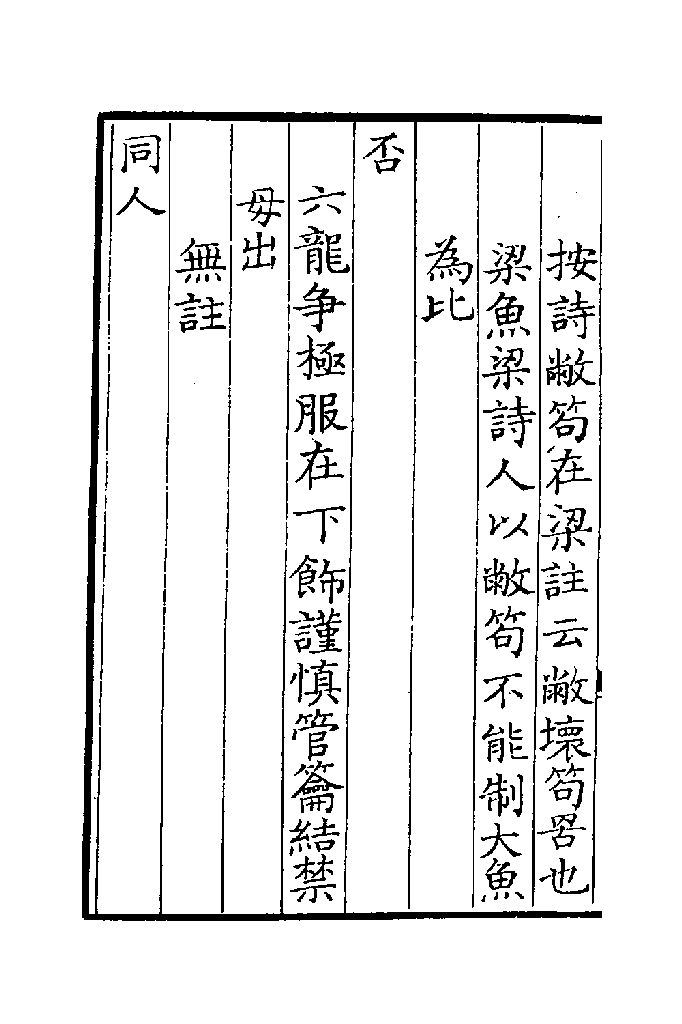 按詩敝笱在梁註云敝壞笱罟也
梁魚梁詩人以敝笱不能制大魚
為比
否
六龍争極服在下飾謹慎管籥結禁
毋出
無註
同人